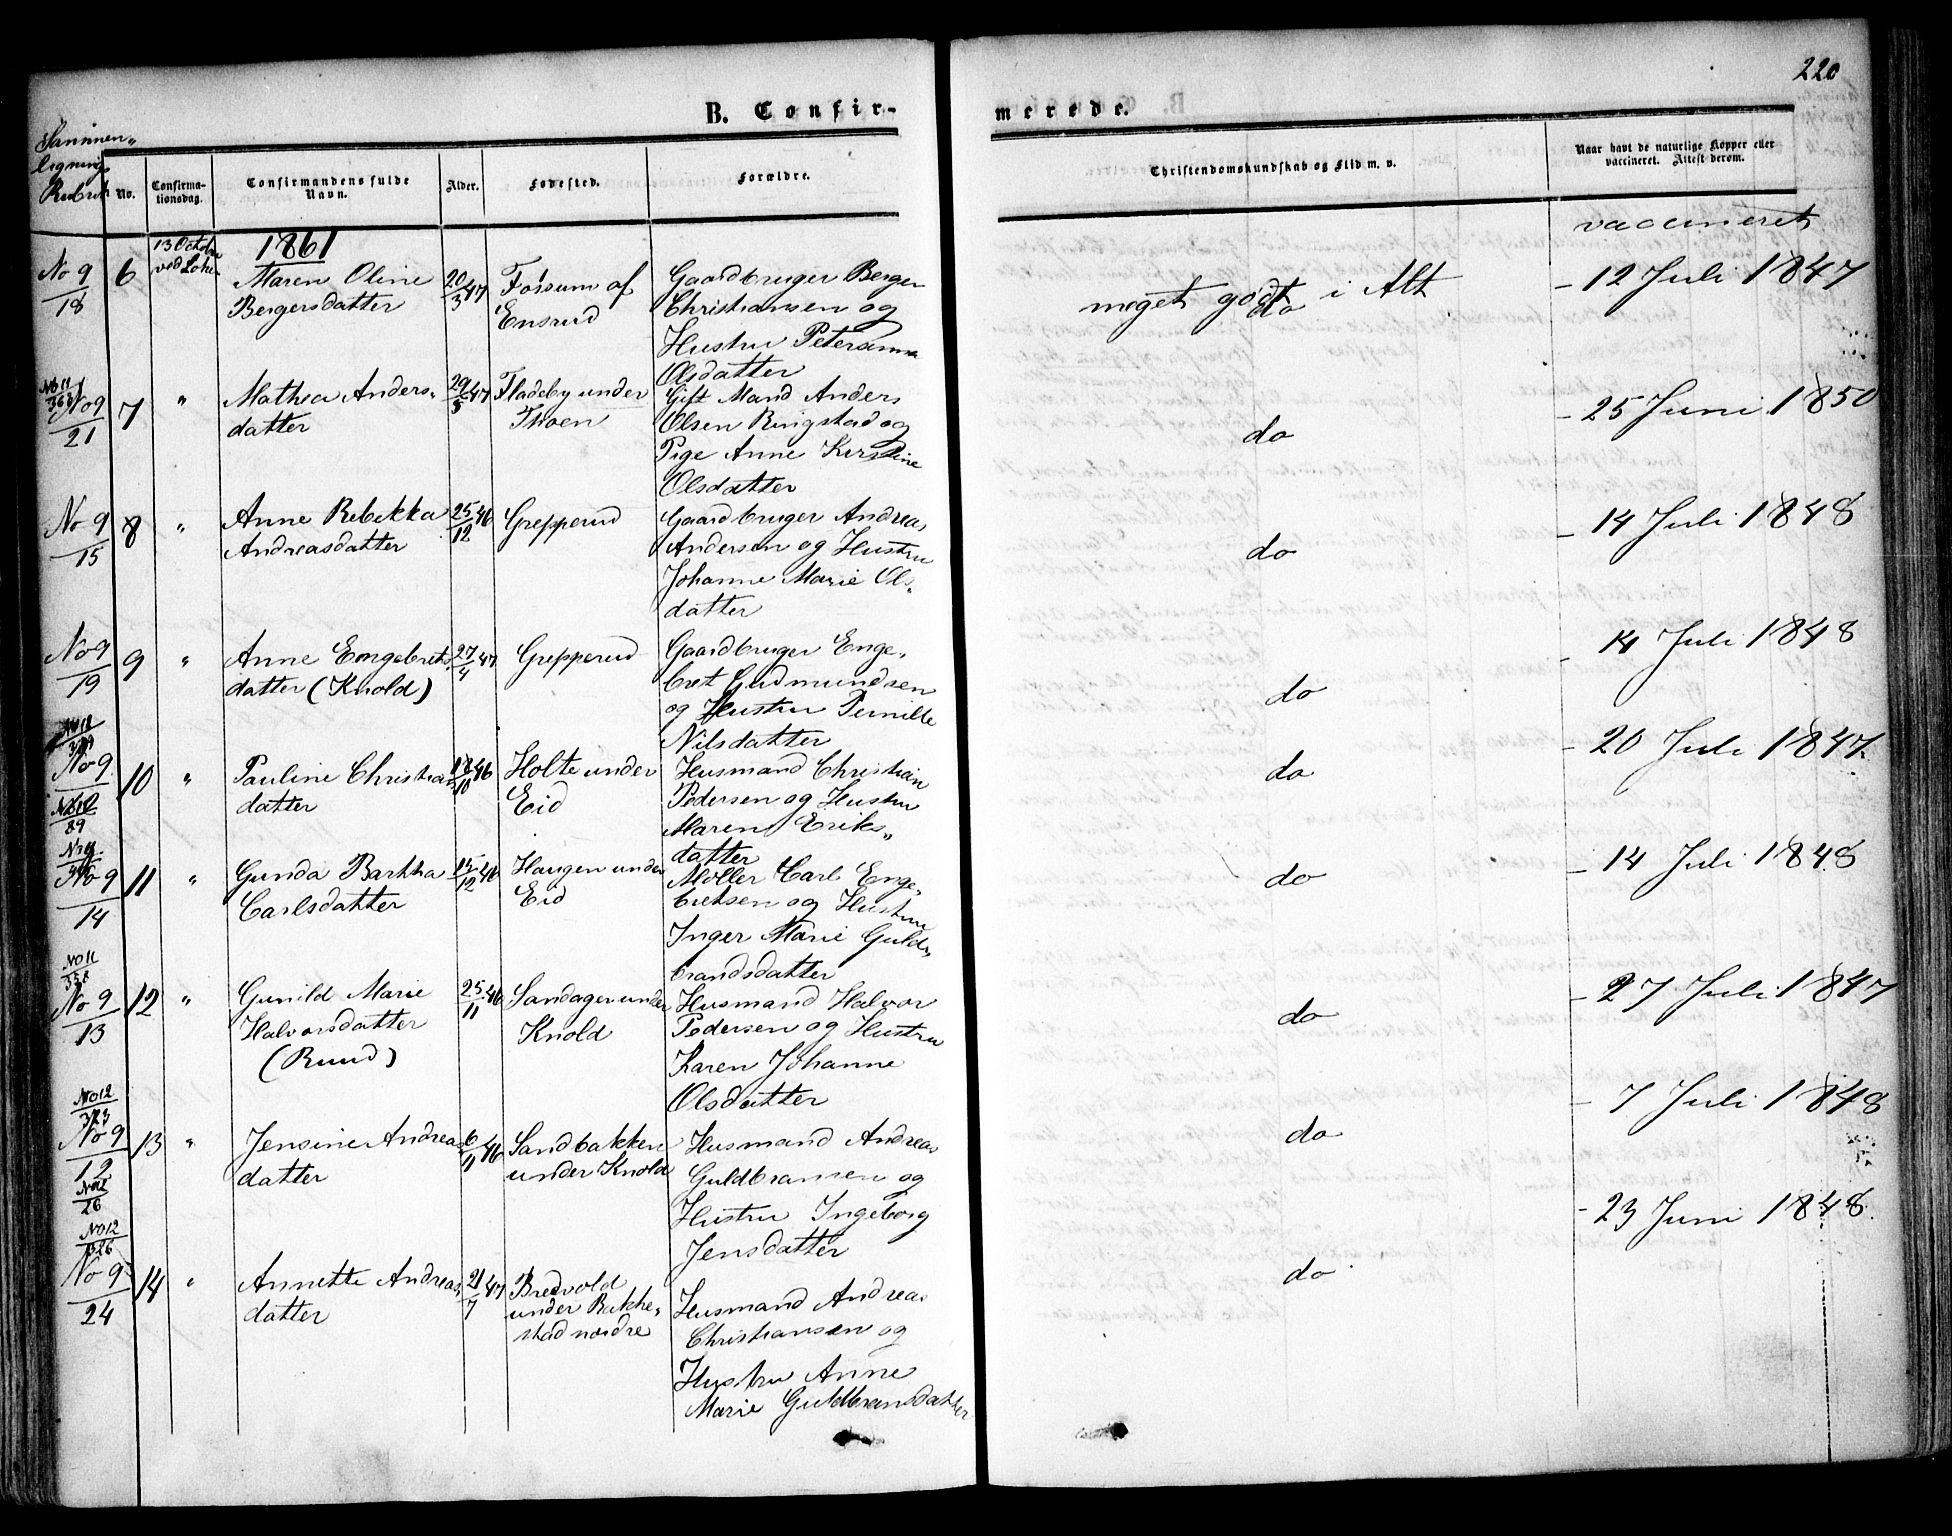 220
B. Confir-
merede.
Sammen-
lignings
Rubrik
No.
Confirma-
tionsdag.
Confirmandens fulde
Navn.
Alder.
Fødested.
Forældre.
Christendomskundskab og Flid m. v.
Naar havt de naturlige Kopper eller
vaccineret. Attest derom.
1861
vaccineret
No 9
18
6
13 October
ved
Maren Oline
Bergersdatter
20/3 47
Forsum af
Ensrud
Gaardbruger Berger
Christiansen og
Hustru
Olsdatter
meget godt i Alt
do
- 12 Juli 1847
No 11
No 9
21
7
"
Mathea Anders-
datter
29/5 47
Fladeby under
Gift Mand Anders
Olsen Ringstad og
Pige Anne Kirstine
Olsdatter
do
- 25 Juni 1850
No 9
15
8
"
Anne Rebekka
Andreasdatter
25/12 46
Grepperud
Gaardbruger Andreas
Andersen og Hustru
Johanne Marie Ols-
datter
do
- 14 Juli 1848
No 9
19
9
"
Anne Engebrets-
datter (Knold)
27/4 47
Grepperud
Gaardbruger Enge-
bret Gudmundsen
og Hustru Pernille
Nilsdatter
do
- 14 Juli 1848
No 12
No 9
10
"
Pauline Christians-
datter
46
Holte under
Eid
Husmand Christian
Pedersen og Hustru
Maren Eriks-
datter
do
- 20 Juli 1847.
89
No 9
14
11
"
Gunda Bartha
Carlsdatter
15/12 46
Haugen under
Eid
Møller Carl Enge-
bretsen og Hustru
Inger Marie Guld-
brandsdatter
do
- 14 Juli 1848
No 11
358
No 9
13
12
"
Gunild Marie
Halvorsdatter
(Ruud)
25/11 46
Sandager under
Knold
Husmand Halvor
Pedersen og Hustru
Karen Johanne
Olsdatter
do
- 27 Juli 1847
No 12
323
No 9
12
No 12
26
13
"
Jensine Andreas-
datter
6/11 46
Sandbakken
under Knold
Husmand Andreas
Guldbransen og
Hustru Ingeborg
Jensdatter
do
- 7 Juli 1848
No 12
326
No 9
24
14
"
Annette Andreas-
datter
21/7 47
Bredvold
under Bakke-
stad nordre
Husmand Andreas
Christiansen og
Hustru Anne
Marie Guldbransdatter
do
- 23 Juni 1848.